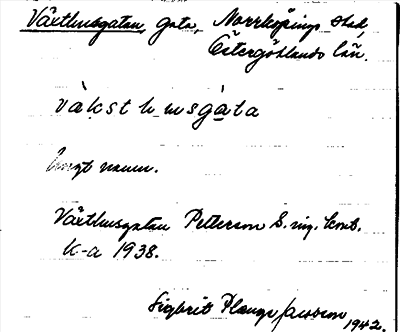 Växthusgatan, gata, Norrköpings stad,
Östergötlands län.
väkst h usgata
Ungt namn.
Växthusgatan Petterson S. ing. Smb.
K-a 1938.
Sigbrit Plange Janson
1942.